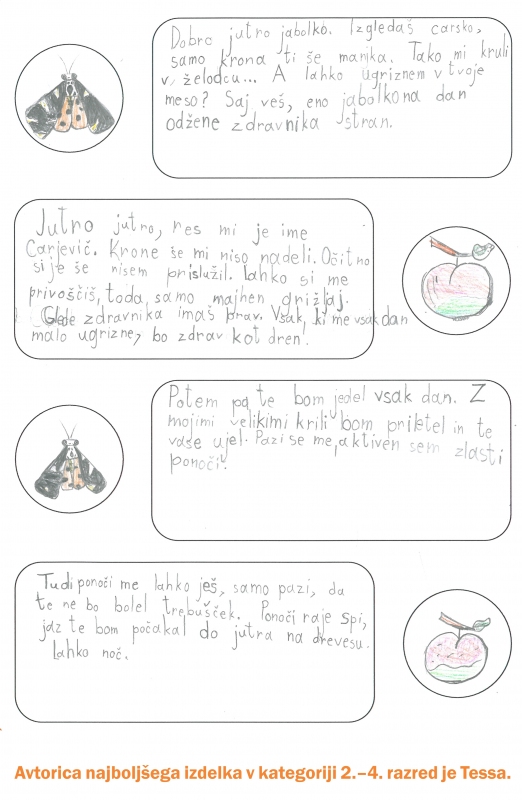 Dobro jutro jabolko. Izgledaš carsko,
samo krona ti še manka. Tako mi kruli
v želodcu... A lahko ugriznem v tvoje
meso? Saj veš, eno jabolko na dan
odžene zdravnika stran.
Jutro jutro, res mi je ime
Carjevič. Krone še mi niso nadeli. Očitno
si je še nisem prislužil. lahko si me
privoščiš, toda samo majhen grižljaj.
Glede zdravnika imaš prav. Vsak, ki me vsak dan
malo ugrizne, bo zdrav kot dren.
Potem pa te bom jedel vsak dan. Z
mojimi velikimi krili bom priletel in te
vase ujel. Pazi se me, aktiven sem zlasti
ponoči!
Tudi ponoči me lahko ješ, samo pazi, da
te ne bo bolel trebušček. Ponoči raje spi,
jaz te bom počakal do jutra na drevesu.
Lahko noč.
Avtorica najboljšega izdelka v kategoriji 2.–4. razred je Tessa.